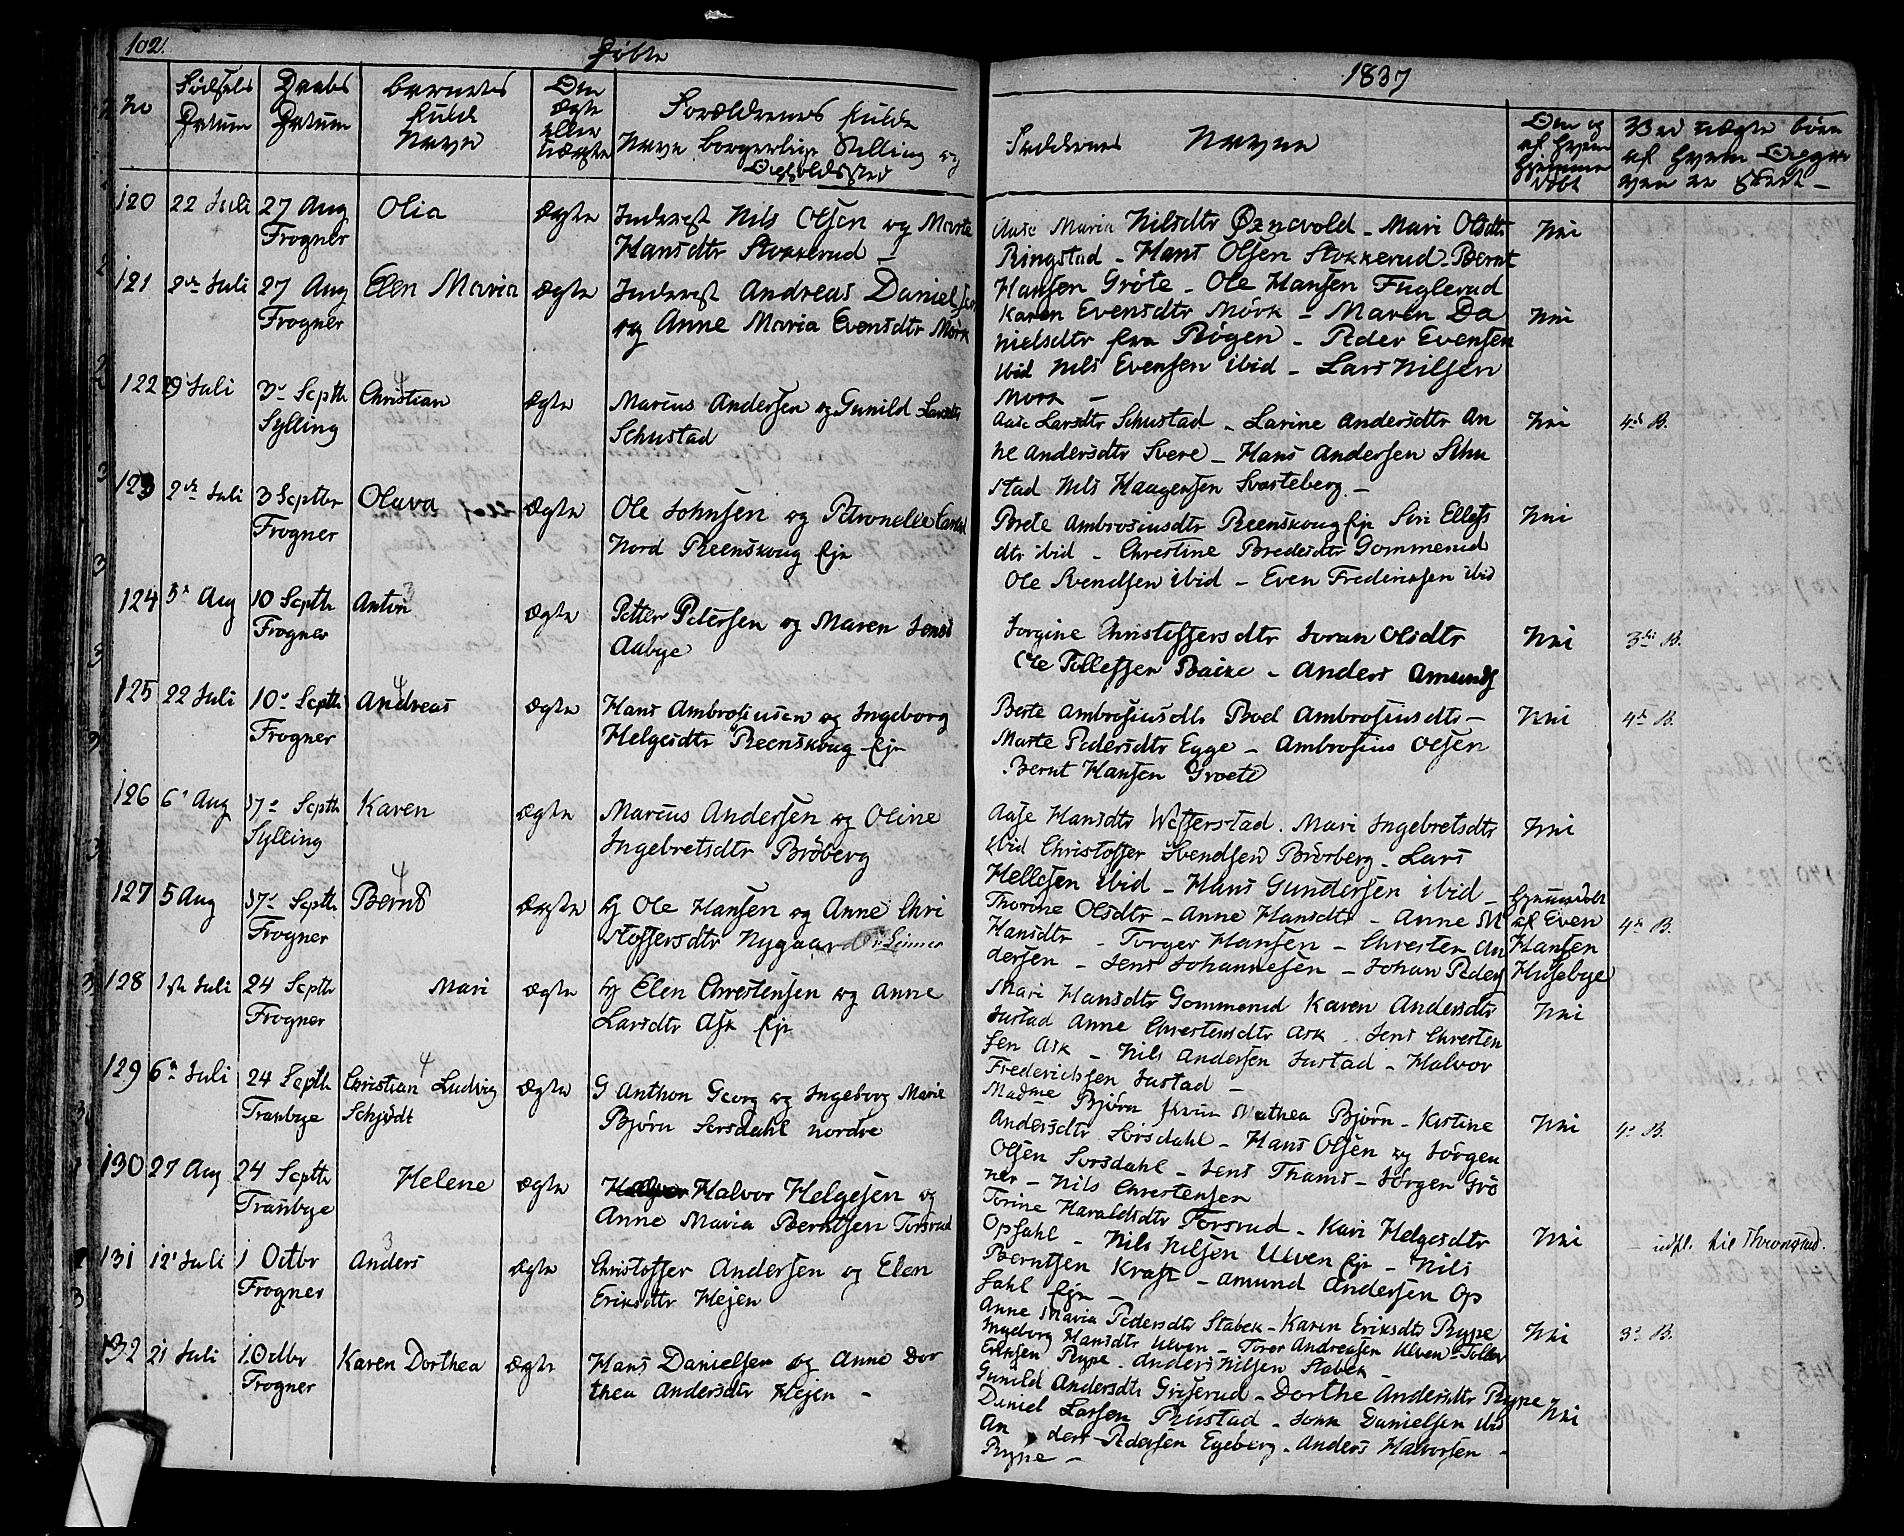 102.
Døbte
1837
No
Fødsels Datum
Daabs Datum
Barnets fulde Navn
Om ægte eller uægte
Forældrenes fulde
Navn borgerlige Stilling og
Opholdssted
Faddernes Navne
Om og af hvem hjemmedøbt
Ved uægte børn
120 22 Juli 27 Aug Frogner
Olia
Ægte
Inderest Nils Olsen og Marte
Hansdtr Stokkerud -
Maria Nilsdtr Ørnevold - Mari Olsdtr
Ringstad - Hans Olsen Stokkerud - Bernt
Hansen Gröte - Ole Hansen Fuglerud
Nei
121 2de Juli 27 Aug Frogner
Elen Maria
Ægte
Inderest Andreas Danielsen
og Anne Maria Evensdtr Mörk
Karen Evensdtr Mörk - Maren Da
nielsdtr fra Røgen - Peder Evensen
ibid Nils Evensen ibid - Lars Nilsen
Mörk -
Nei
122 29 Juli 3 Septbr Sylling
Christian
4
Ægte
Marcus Andersen og Gunild Larsdtr
Schustad
Aase Larsdtr Schustad - Larine Andersdtr An
ne Andersdtr Svere - Hans Andersen Schu
stad Nils Haagensen Svarteberg -
Nei
4de B.
123 2de Juli 3 Septbr Frogner
Olava
Ægte
Ole Johnsen og Petronelle
Nord Reenskoug Eje
Berte Ambrosiusdtr Reenskoug Eje Siri Ellefs
dtr ibid - Christine Bredesdtr Gommerud
Ole Svendsen ibid - Even Fredericksen ibid
Nei
124 5 Aug 10 Septbr Frogner
Anton
3
Ægte
Petter Petersen og Maren Jensd
Aabye
Jorgine Christoffersdtr Joran Olsdtr
Ole Tollefsen - Anders Amunds
Nei
3die B.
125 22 Juli 10 Septbr Frogner
Andreas
4
Ægte
Hans Ambrosiusen og Ingeborg
Helgesdtr Reenskoug Eje
Berte Ambrosiusdtr Boel Ambrosiusdtr -
Marte Pedersdtr Egge - Ambrosius Olsen
Bernt Hansen Groete
Nei
4de B.
126 6 Aug 17 Septbr Sylling
Karen
Ægte
Marcus Andersen og Oline
Ingebretsdtr Bröberg
Aase Hansdtr Wefferstad. Mari Ingebretsdtr
ibid Christoffer Svendsen Brörberg - Lars
Hellesen ibid - Hans Gundersen ibid -
Nei
127 5 Aug 17 Septbr Frogner
Bernt
4
Ægte
Ole Hansen og Anne Chri
stoffersdtr Nygaard
Thorine Olsdtr - Anne Hansdtr - Anne M
Hansdtr - Torger Hansen - Chresten An
dersen - Jens Johannesen - Johan Peders
Hjemmedøbt
af Even
Hansen
Husebye
4de B.
128 1ste Juli 24 Septbr Frogner
Mari
Ægte
Elen Chrestensen og Anne
Larsdtr Ask Eje
Mari Hansdtr Gommerud Karen Andersdtr
Justad Anne Chrestensdtr Ask. Jens Chresten
sen Ask - Nils Andersen Justad - Halvor
Frederichsen Justad -
Nei
129 6 Juli 24 Septbr Tranbye
Christian Ludvig
Schjödt
4
Ægte
G Anthon Georg og Ingeborg Marie
Bjørn Sørsdahl nordre
Madme Bjørn Mathea Bjørn - Kirstine
Andersdtr Sørsdahl - Hans Olsen og Jörgen
Olsen Sørsdahl - Jens Thams - Jörgen Grö
ner - Nils Chrestensen
Nei
4 B.
130 27 Aug 24 Septbr Tranbye
Helene
Ægte
Halvor Helgesen og
Anne Maria Berntsen Torsrud
Torine Haraldsdtr Torsrud - Kari Helgesdtr
Opsahl - Nils Nilsen Ulven Eje - Nils
Berntsen Kraft - Amund Andersen Op
sahl Eje -
Nei
131 12 Juli 1 Octbr Frogner
Anders
3
Ægte
Christoffer Andersen og Elen
Eriksdtr Hejen
Anne Maria Pedersdtr Stabek - Karen Eriksdtr Rype
Ingeborg Hansdtr Ulven - Torer Andreasen Ulven - Tollev
Eriksen Rype - Anders Nilsen Stabek -
Nei
3 B.
132 21 Juli 1 Octbr Frogner
Karen Dorthea
Ægte
Hans Danielsen og Anne Dor
thea Andersdtr Hejen -
Gunild Andersdtr Griserud - Dorthe Andersdtr Rype
Daniel Larsen Prustad - John Danielsen ibid
An ders Pedersen Egeberg - Anders Halvorsen -
Rype -
Nei